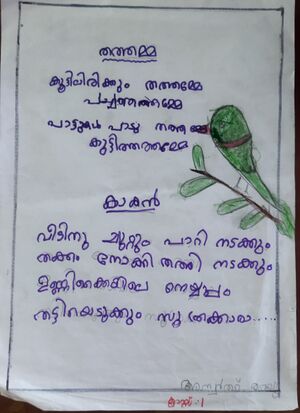 തത്തമ്മ
കൂട്ടിലിരിക്കും തത്തമ്മേ
പച്ചത്തത്തമ്മേ
പാട്ടുകൾ പാടൂ തത്തമ്മേ
കുട്ടിത്തത്തമ്മേ
കാകൻ
വീടിനു ചുറ്റും പാറി നടക്കും
തക്കം നോക്കി തത്തി നടക്കും
ഉണ്ണിക്കൈയിലെ നെയ്യപ്പം
തട്ടിയെടുക്കും സൂത്രക്കാരാ.....
ക്ലാസ്സ് - 1